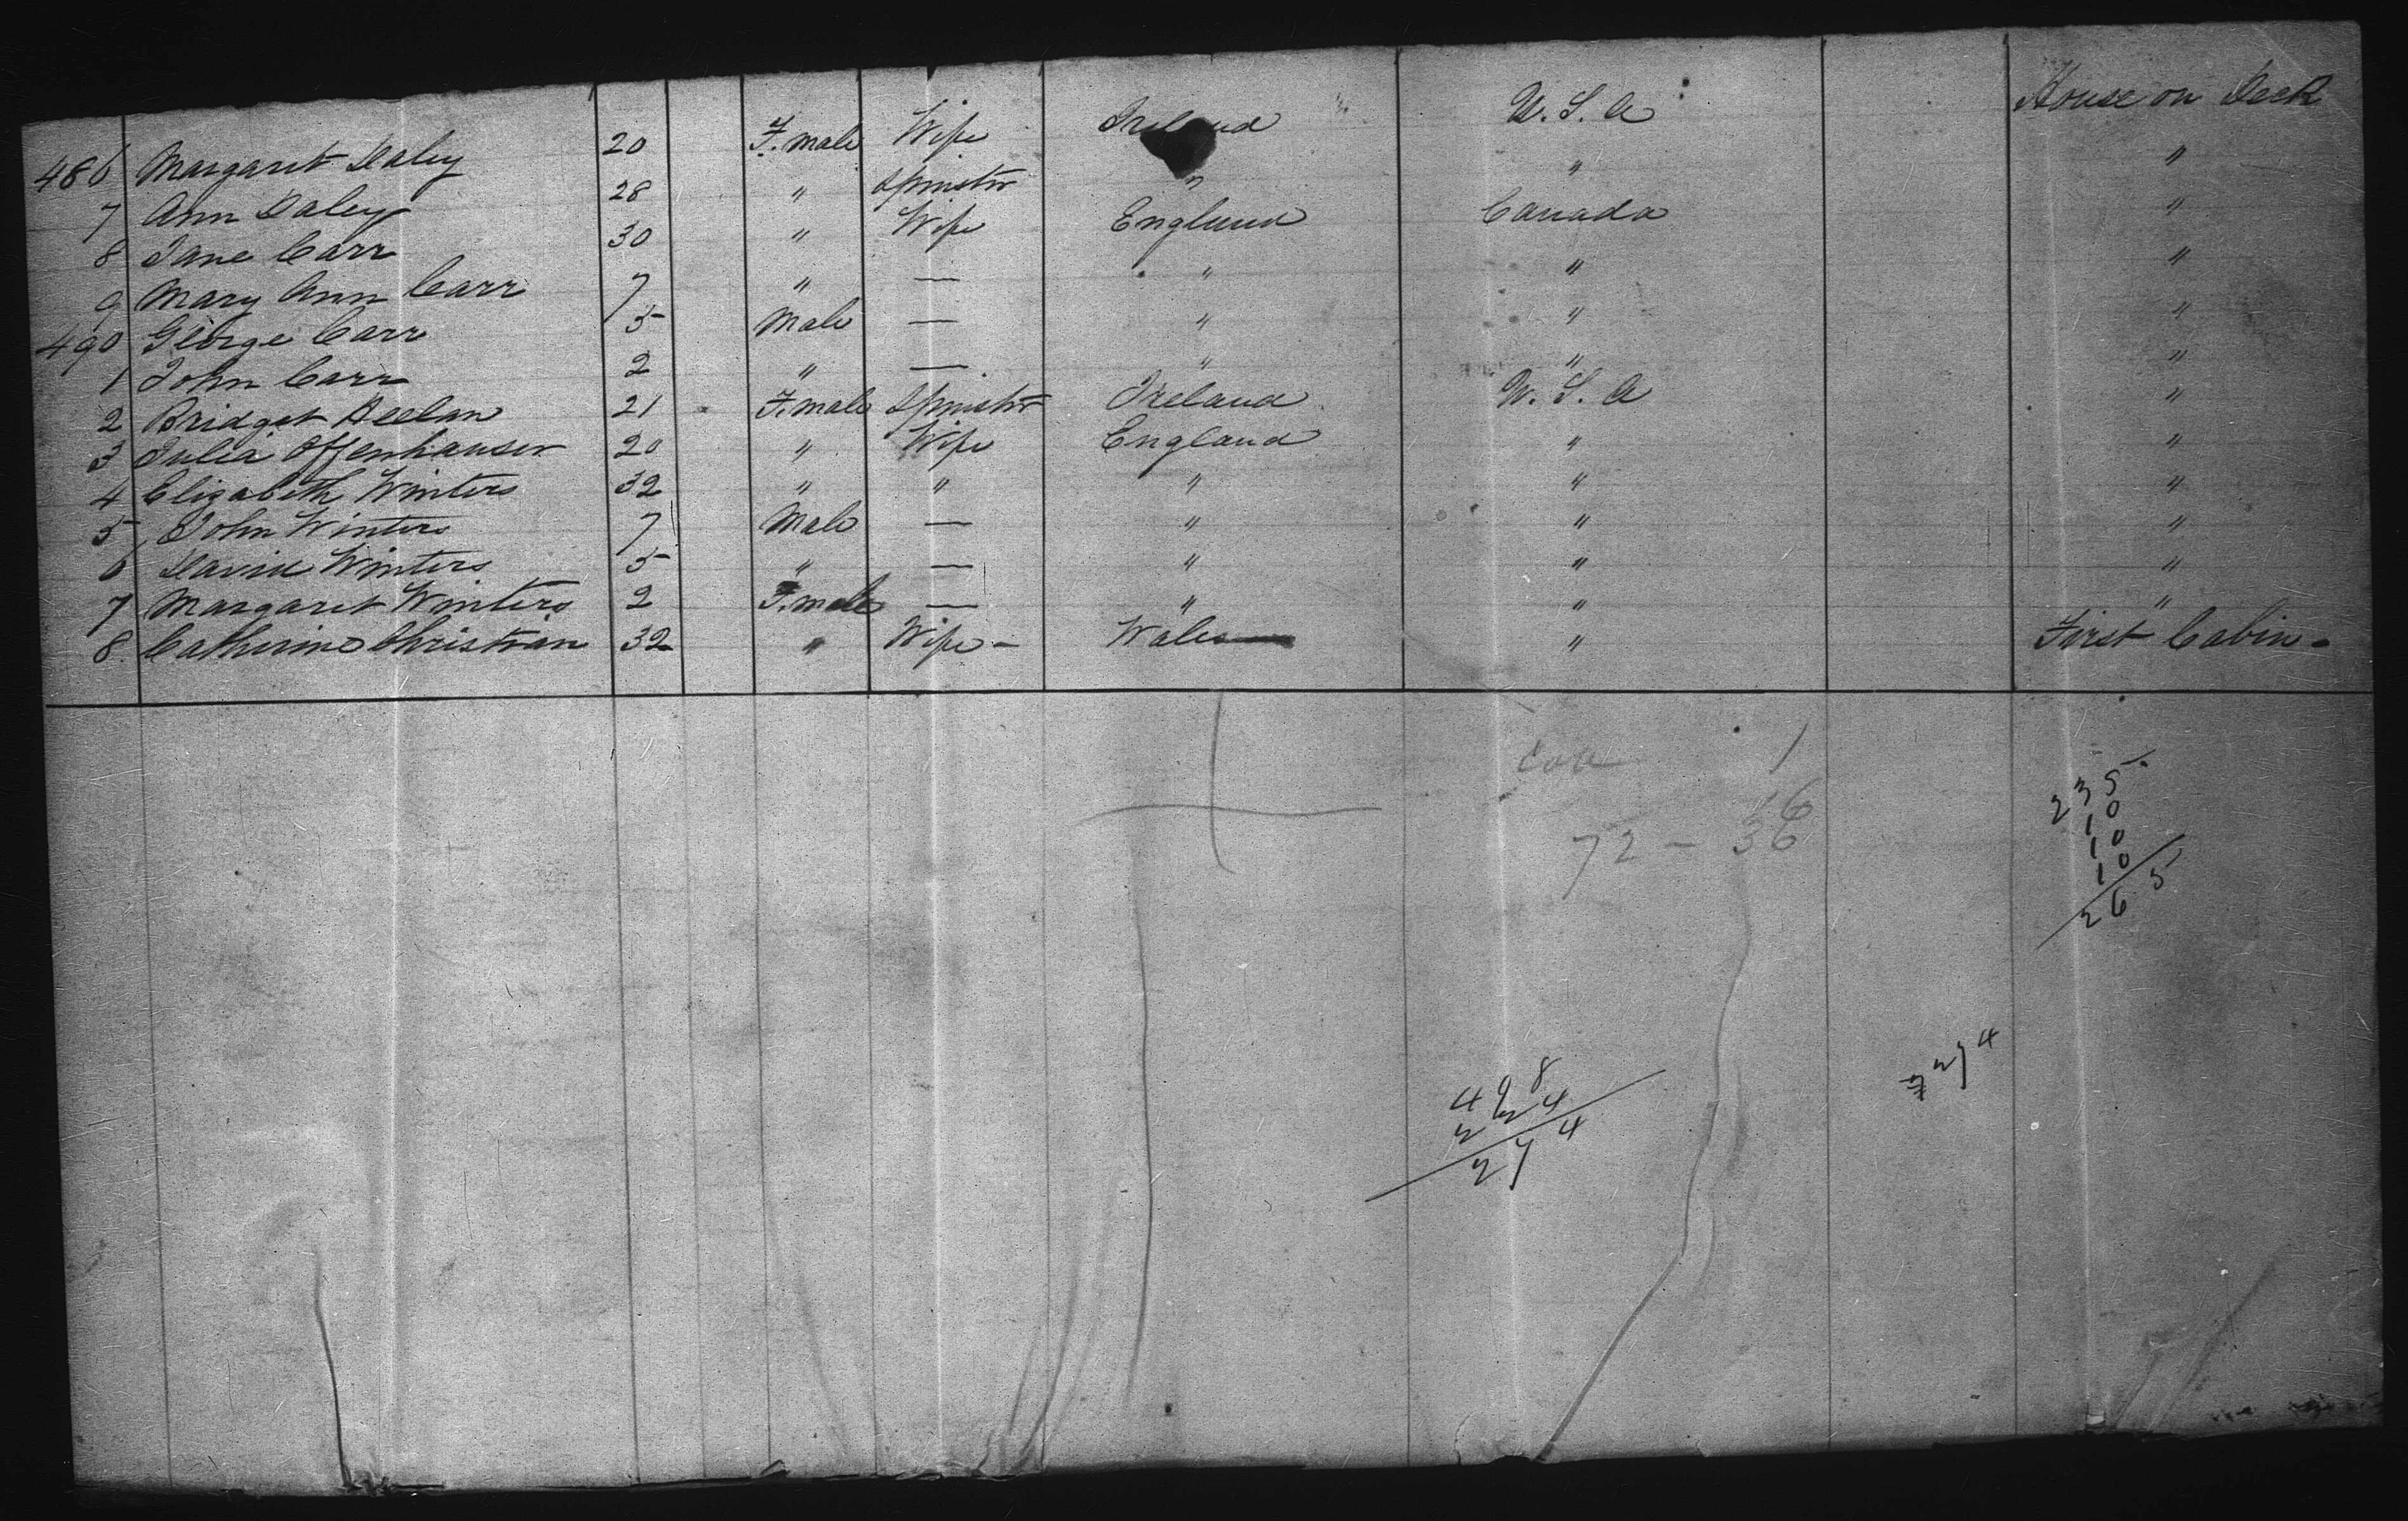 486 Margaret Daley 20 F.male Wife Ireland U.S.A House on Deck
7 Ann Daley 28 " Spinster " " "
8 Jane Carr 30 " Wife England Canada "
9 Mary Ann Carr 7 " — " " "
490 George Carr 5 Male — " " "
1 John Carr 2 " — " " "
2 Bridget 21 F.male Spinster Ireland U.S.A "
3 Julia Offenhauser 20 " Wife England " "
4 Elizabeth Winters 32 " " " " "
5 John Winters 7 Male — " " "
6 David Winters 5 " — " " "
7 Margaret Winters 2 F.male — " " "
8. Catherine Christian 32 " Wife – Wales " First Cabin –
1
72 – 36
235
10
10
10
265
498
224
274
274